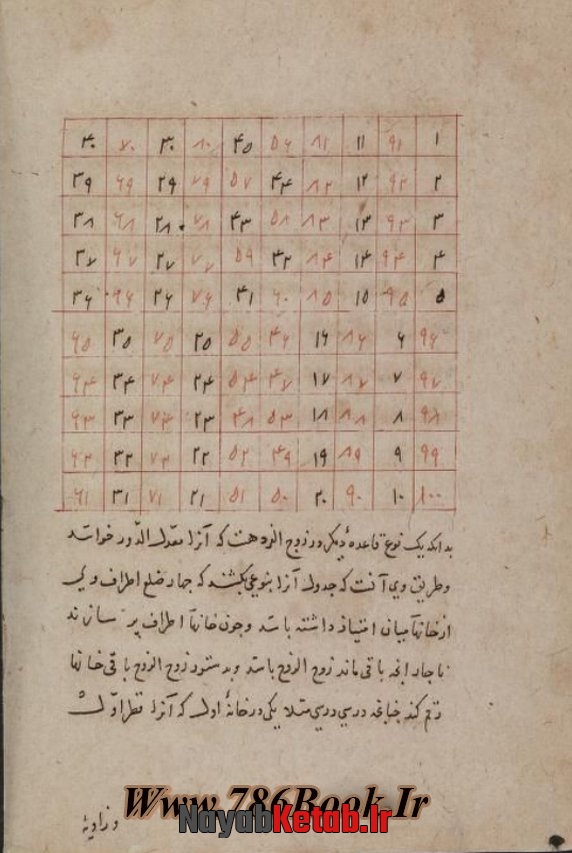 ۴۰ ۷۰ ۳۰ ۸۰ ۴۵ ۵۶ ۸۱ ۱۱ ۹۱ ۱
۳۹ ۶۹ ۲۹ ۷۹ ۵۷ ۴۴ ۸۲ ۱۲ ۹۲ ۲
۳۸ ۶۸ ۲۸ ۷۸ ۴۳ ۵۸ ۸۳ ۱۳ ۹۳ ۳
۳۷ ۶۷ ۲۷ ۷۷ ۵۹ ۴۲ ۸۴ ۱۴ ۹۴ ۴
۳۶ ۶۶ ۲۶ ۷۶ ۴۱ ۶۰ ۸۵ ۱۵ ۹۵ ۵
۶۵ ۳۵ ۷۵ ۲۵ ۵۵ ۴۶ ۱۶ ۸۶ ۶ ۹۶
۶۴ ۳۴ ۷۴ ۲۴ ۵۴ ۴۷ ۱۷ ۸۷ ۷ ۹۷
۶۳ ۳۳ ۷۳ ۲۳ ۴۸ ۵۳ ۱۸ ۸۸ ۸ ۹۸
۶۲ ۳۲ ۷۲ ۲۲ ۵۲ ۴۹ ۱۹ ۸۹ ۹ ۹۹
۶۱ ۳۱ ۷۱ ۲۱ ۵۱ ۵۰ ۲۰ ۹۰ ۱۰ ۱۰۰
بدانکه یک نوع قاعدهٔ دیگر در زوج الفرد هست که آنرا معدل الدور خوانند
و طریق وی آنست که جدول آنرا بنوعی بکشند که چهار ضلع اطراف وی
از خانهآ میان امتیاز داشته باشد و چون خانهآ اطراف پر سازند
ناچار انچه باقی ماند زوج الزوج باشد و بدستور زوج الزوج باقی خانها
رقم کند چنانچه در می در می مثلا یکی در خانهٔ اول که آنرا قطر اول
و زاویهٔ
Www.786Book.Ir
NayabKetab.ir